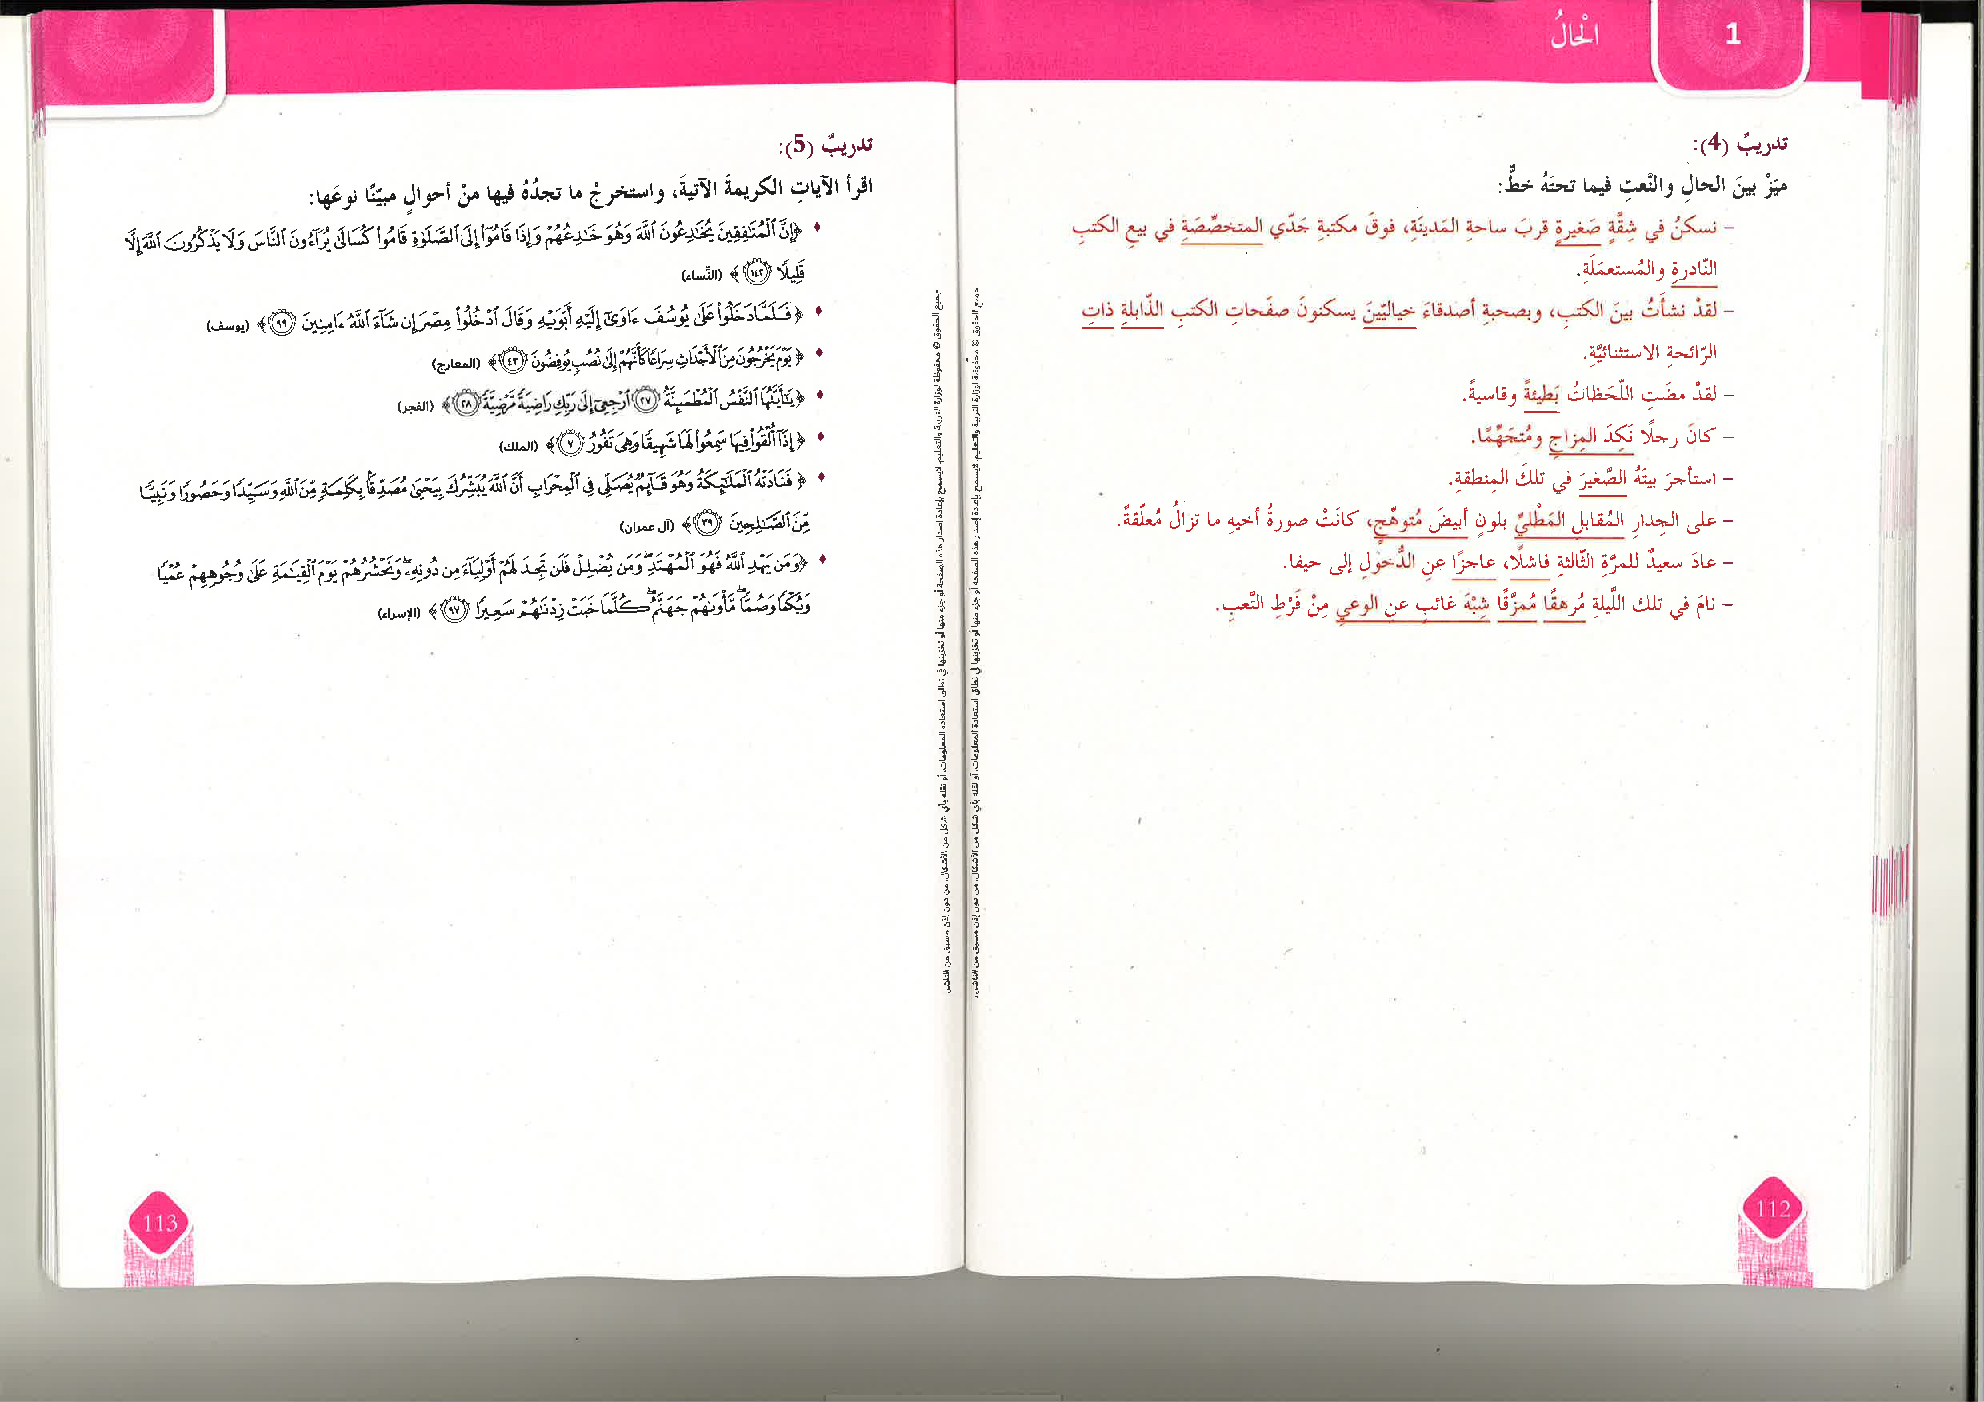 1
الْحالُ
تدريبٌ (4):
ميّزْ بينَ الحالِ والنَّعتِ فيما تحتَهُ خطٌّ:
– نسكنُ في شِقَّةٍ صَغيرةٍ قربَ ساحةِ المَدينَةِ، فوقَ مكتبةِ جَدّي المتخصِّصَةِ في بيعِ الكتبِ
النّادرةِ والمُستعمَلَةِ.
– لقدْ نشأتُ بينَ الكتبِ، وبصحبةِ أصدقاءَ خياليّينَ يسكنونَ صفَحاتِ الكتبِ الذّابلةِ ذاتِ
الرّائحةِ الاستثنائيَّةِ.
– لقدْ مضَتِ اللّحَظاتُ بَطيئةً وقاسيةً.
– كانَ رجلًا نَكِدَ المِزاجِ ومُتجَهِّمًا.
– استأجرَ بيتَهُ الصَّغيرَ في تلكَ المِنطقةِ.
– على الجِدارِ المُقابلِ المَطْليِّ بلونٍ أبيضَ مُتوهِّجٍ، كانَتْ صورةُ أخيهِ ما تزالُ مُعلّقةً.
– عادَ سعيدٌ للمرَّةِ الثّالثةِ فاشلًا، عاجزًا عنِ الدُّخولِ إلى حيفا.
– نامَ في تلك اللَّيلةِ مُرهقًا مُمزَّقًا شِبْهَ غائبٍ عن الوعي مِنْ فَرْطِ التَّعبِ.
112
تدريبٌ (5):
اقرأ الآياتِ الكريمةَ الآتيةَ، واستخرجْ ما تجدُهُ فيها منْ أحوالٍ مبيّنًا نوعَها:
﴿إِنَّ ٱلْمُنَٰفِقِينَ يُخَٰدِعُونَ ٱللَّهَ وَهُوَ خَٰدِعُهُمْ وَإِذَا قَامُوٓا۟ إِلَى ٱلصَّلَوٰةِ قَامُوا۟ كُسَالَىٰ يُرَآءُونَ ٱلنَّاسَ وَلَا يَذْكُرُونَ ٱللَّهَ إِلَّا
قَلِيلًا ١٤٢﴾ (النّساء)
﴿فَلَمَّا دَخَلُوا۟ عَلَىٰ يُوسُفَ ءَاوَىٰٓ إِلَيْهِ أَبَوَيْهِ وَقَالَ ٱدْخُلُوا۟ مِصْرَ إِن شَآءَ ٱللَّهُ ءَامِنِينَ ٩٩﴾ (يوسف)
﴿يَوْمَ يَخْرُجُونَ مِنَ ٱلْأَجْدَاثِ سِرَاعًا كَأَنَّهُمْ إِلَىٰ نُصُبٍ يُوفِضُونَ ٤٣﴾ (المعارج)
﴿يَٰٓأَيَّتُهَا ٱلنَّفْسُ ٱلْمُطْمَئِنَّةُ ٢٧ ٱرْجِعِىٓ إِلَىٰ رَبِّكِ رَاضِيَةً مَّرْضِيَّةً ٢٨﴾ (الفجر)
﴿إِذَآ أُلْقُوا۟ فِيهَا سَمِعُوا۟ لَهَا شَهِيقًا وَهِىَ تَفُورُ ٧﴾ (الملك)
﴿فَنَادَتْهُ ٱلْمَلَٰٓئِكَةُ وَهُوَ قَآئِمٌ يُصَلِّى فِى ٱلْمِحْرَابِ أَنَّ ٱللَّهَ يُبَشِّرُكَ بِيَحْيَىٰ مُصَدِّقًۢا بِكَلِمَةٍ مِّنَ ٱللَّهِ وَسَيِّدًا وَحَصُورًا وَنَبِيًّا
مِّنَ ٱلصَّٰلِحِينَ ٣٩﴾ (آل عمران)
﴿وَمَن يَهْدِ ٱللَّهُ فَهُوَ ٱلْمُهْتَدِ وَمَن يُضْلِلْ فَلَن تَجِدَ لَهُمْ أَوْلِيَآءَ مِن دُونِهِۦ وَنَحْشُرُهُمْ يَوْمَ ٱلْقِيَٰمَةِ عَلَىٰ وُجُوهِهِمْ عُمْيًا
وَبُكْمًا وَصُمًّا مَّأْوَىٰهُمْ جَهَنَّمُ كُلَّمَا خَبَتْ زِدْنَٰهُمْ سَعِيرًا ٩٧﴾ (الإسراء)
113